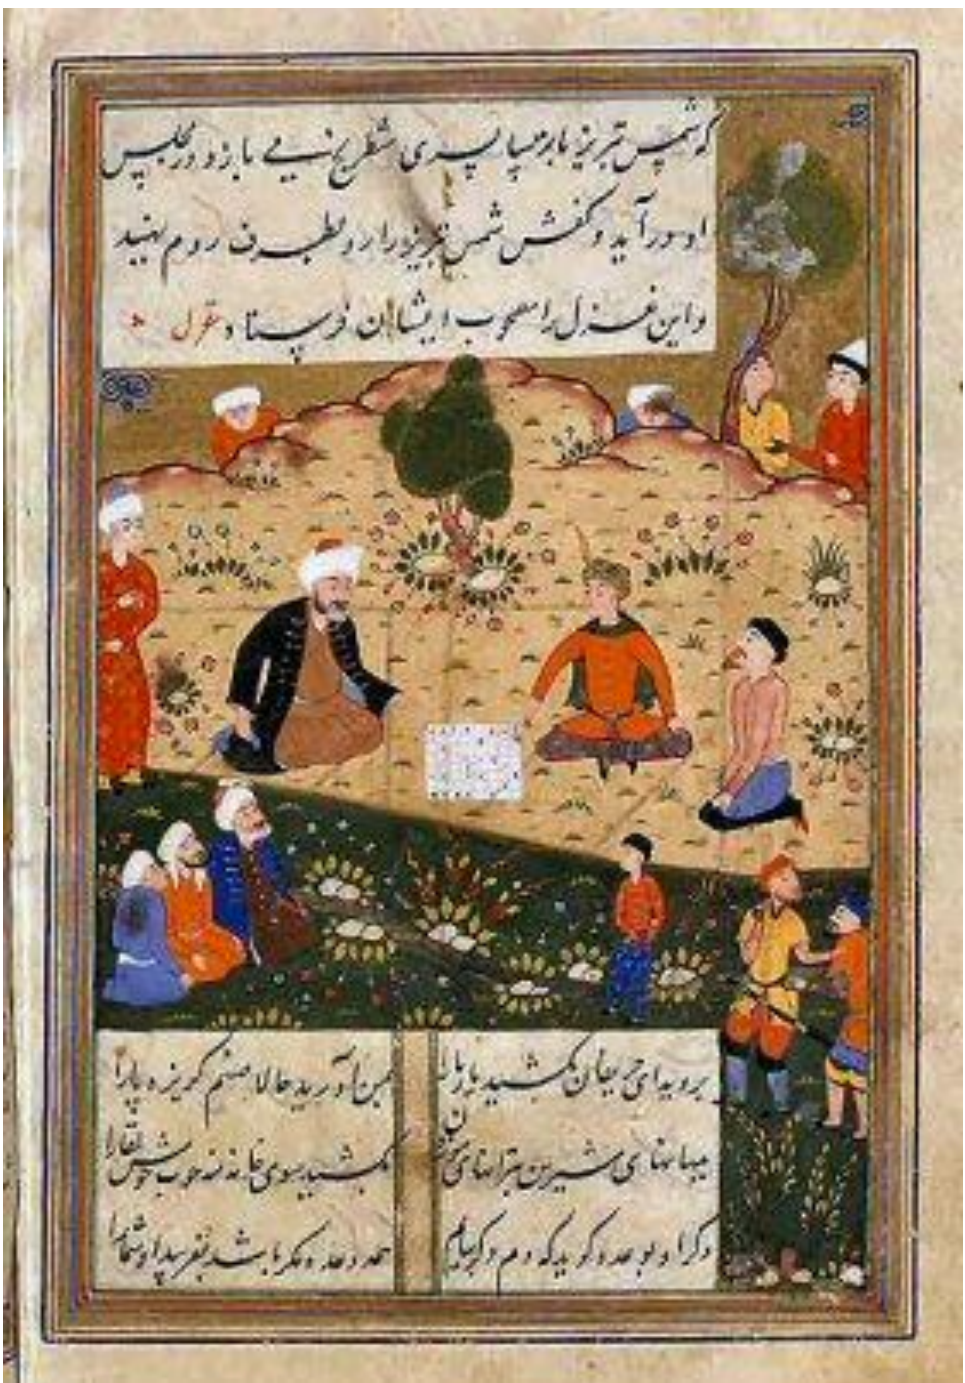 که شمس تبریز با ترسا پسری شطرنج می بازد در مجلس
او درآید و کفش شمس تبریز را رو بطرف روم بنهید
و این غزل را مصحوب ایشان فرستاد غزل
بروید ای حریفان بکشید یار ما را بمن آورید حالا صنم گریزه پا را
ببهانهای شیرین بترانهای موزون بکشید سوی خانه مه خوب خوش لقا را
وگر او بوعده گوید که دم دگر بیایم همه وعده مکر باشد بفریبد او شما را